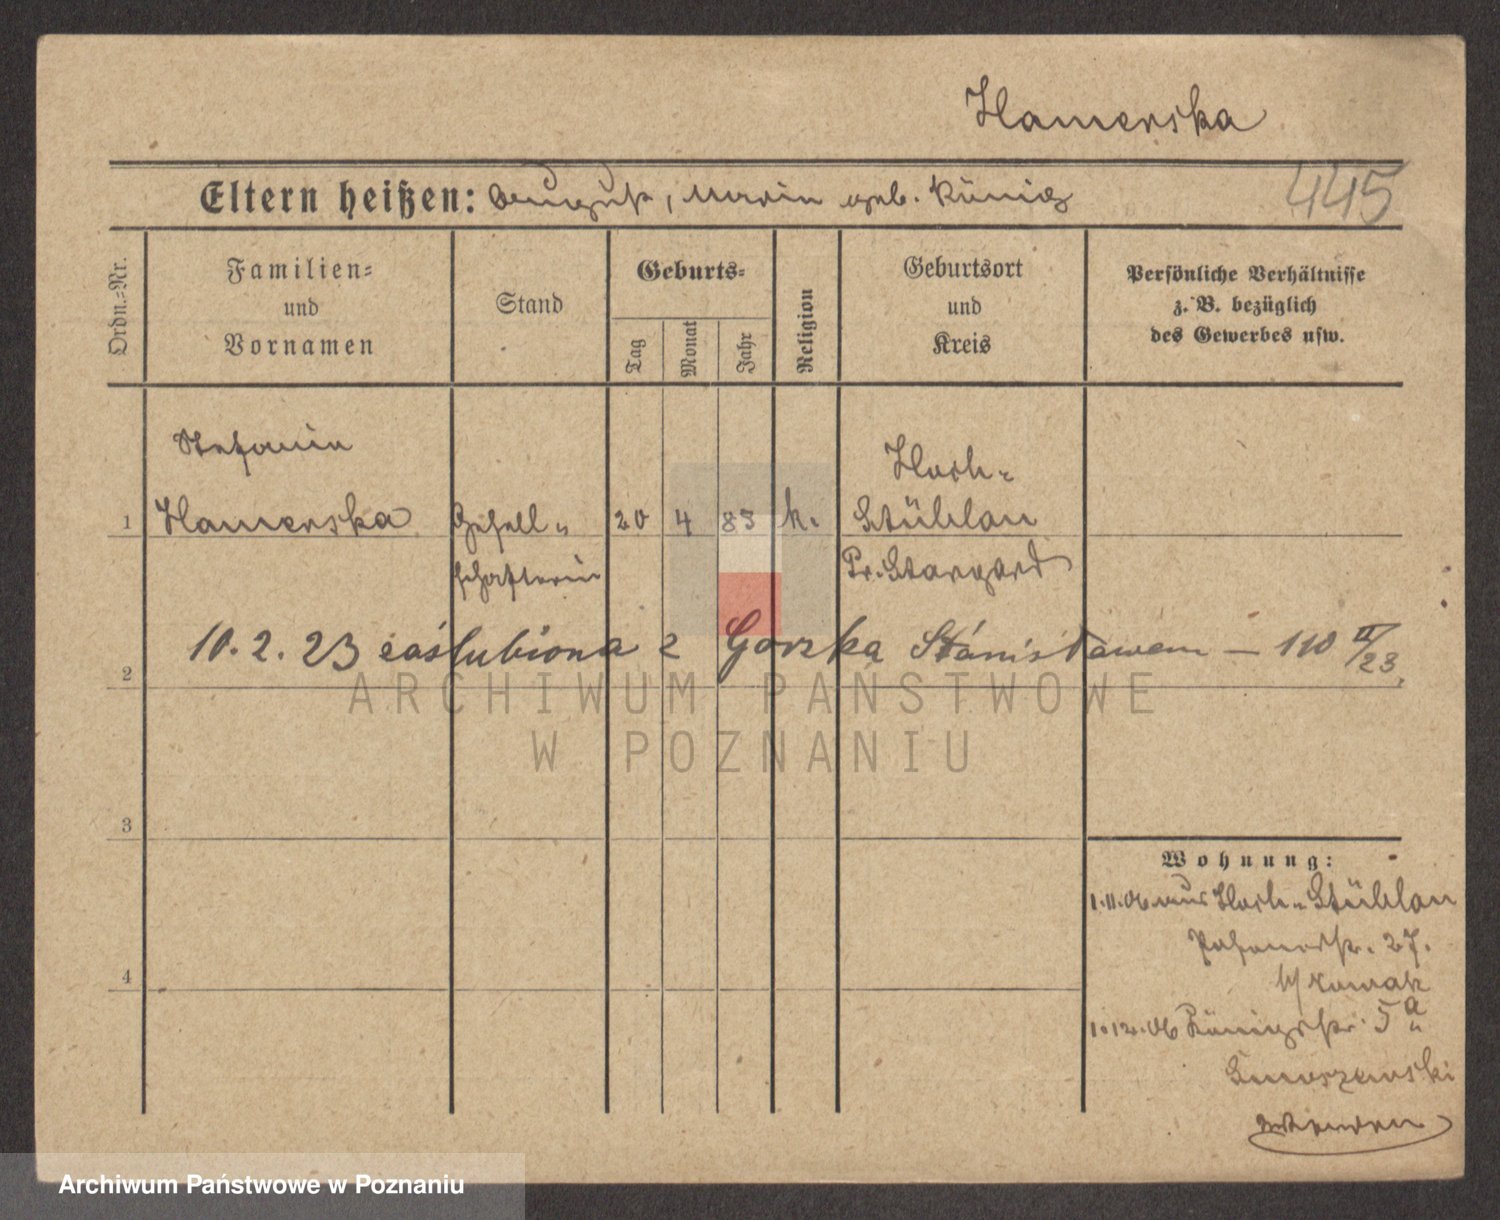 Hamerska
Eltern heißen: August, Marie geb. König
445
Ordn.=Nr.
Familien=
und
Vornamen
Stand
Geburts=
Tag
Monat
Jahr
Religion
Geburtsort
und
Kreis
Persönliche Verhältnisse
z. B. bezüglich
des Gewerbes usw.
Stefanie
1 Hamerska Gesell= 20 4 83 k. Hoch=
Stüblau
schafterin Pr. Stargard
2 10.2.23 zaślubiona z Gorzka Stanisławem — 110 II/23.
3
4
Wohnung:
1.11.06 aus Hoch=Stüblau
Posenerstr. 27.
b/ Nowak
1.12.06 Königstr. 5a
ARCHIWUM PAŃSTWOWE
W POZNANIU
Archiwum Państwowe w Poznaniu